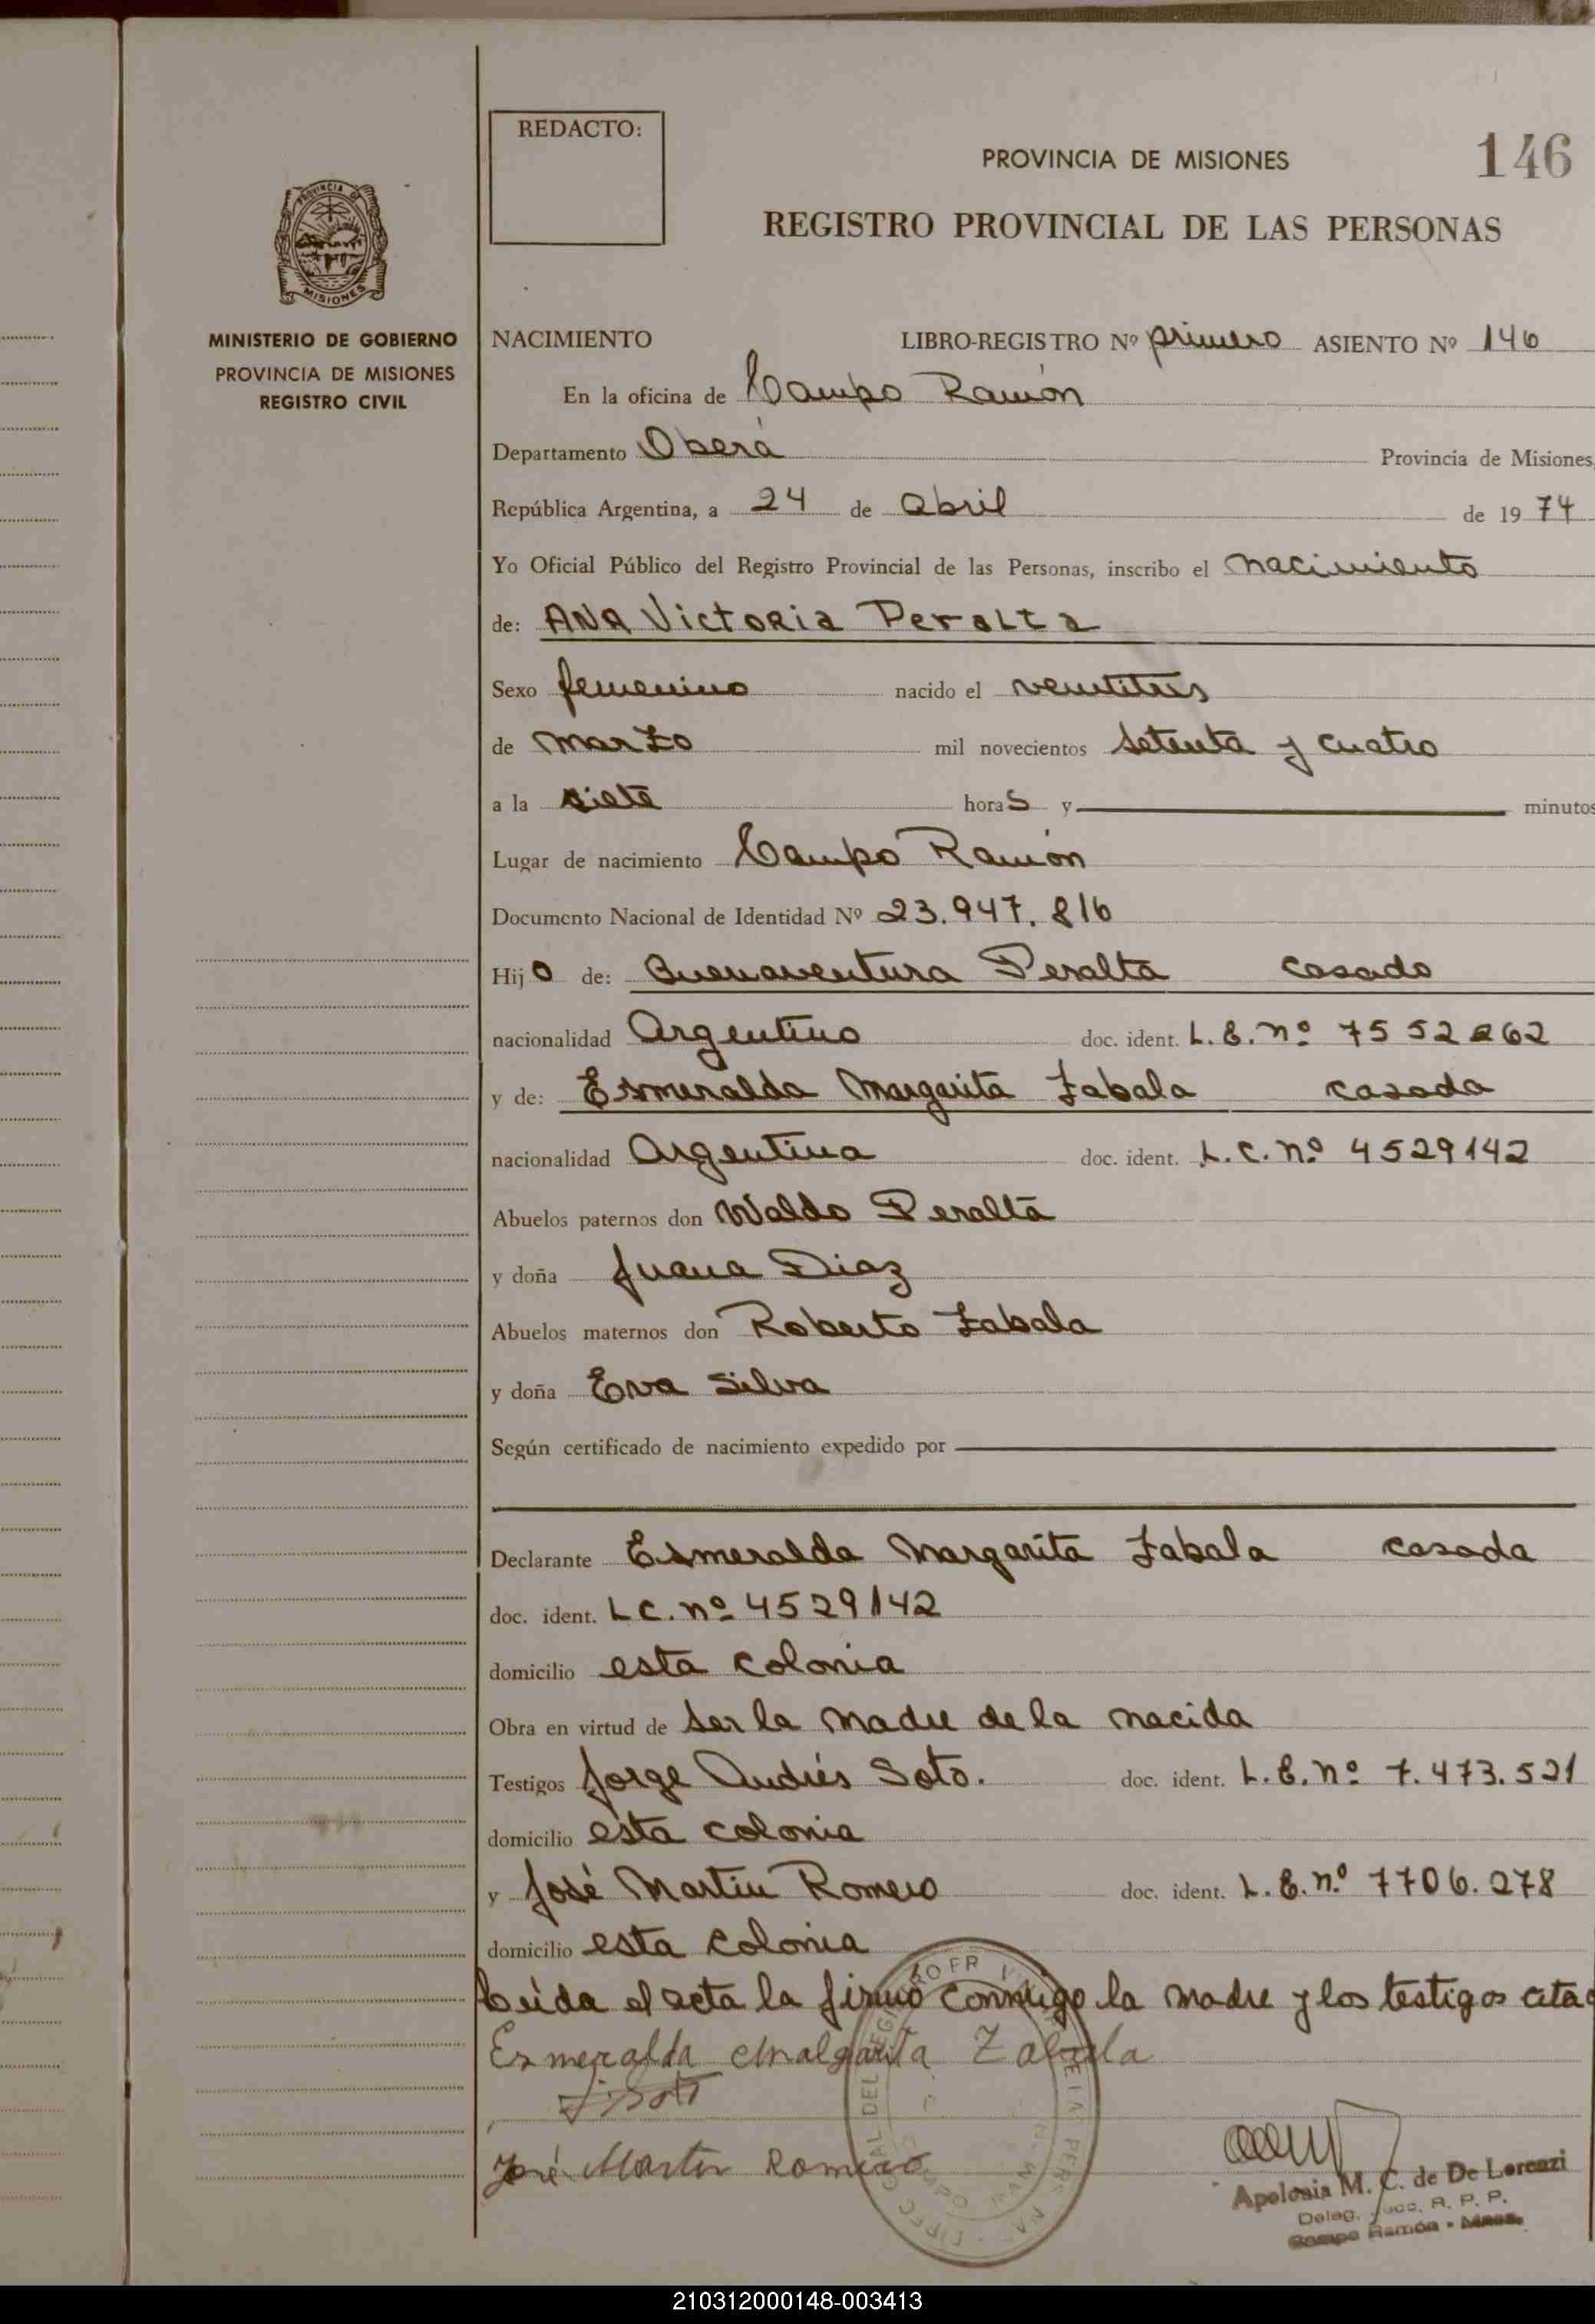 REDACTO:
PROVINCIA DE MISIONES
146
REGISTRO PROVINCIAL DE LAS PERSONAS
PROVINCIA DE
MISIONES
MINISTERIO DE GOBIERNO
PROVINCIA DE MISIONES
REGISTRO CIVIL
NACIMIENTO LIBRO-REGISTRO Nº primero ASIENTO Nº 146
En la oficina de Campo Ramón
Departamento Oberá Provincia de Misiones,
República Argentina, a 24 de Abril de 1974
Yo Oficial Público del Registro Provincial de las Personas, inscribo el nacimiento
de: ANA Victoria Peralta
Sexo femenino nacido el veintitrés
de marzo mil novecientos setenta y cuatro
a la siete horas y minutos
Lugar de nacimiento Campo Ramón
Documento Nacional de Identidad Nº 23.947.816
Hijo de: Buenaventura Peralta casado
nacionalidad Argentino doc. ident. L.E. nº 7552262
y de: Esmeralda Margarita Zabala casada
nacionalidad Argentina doc. ident. L.C. nº 4529142
Abuelos paternos don Waldo Peralta
y doña Juana Diaz
Abuelos maternos don Roberto Zabala
y doña Eva Silva
Según certificado de nacimiento expedido por
Declarante Esmeralda Margarita Zabala casada
doc. ident. L.C. nº 4529142
domicilio esta colonia
Obra en virtud de ser la madre de la nacida
Testigos Jorge Andrés Soto. doc. ident. L.E. nº 7.473.521
domicilio esta colonia
y José Martin Romero doc. ident. L.E. nº 7706.278
domicilio esta colonia
Leída el acta la firmo conmigo la madre y los testigos citad
Esmeralda Malgarita Zabala
José Martin Romero
Apolonia M. C. de De Lorenzi
Deleg. R. P. P.
Campo Ramón - Mnes.
210312000148-003413